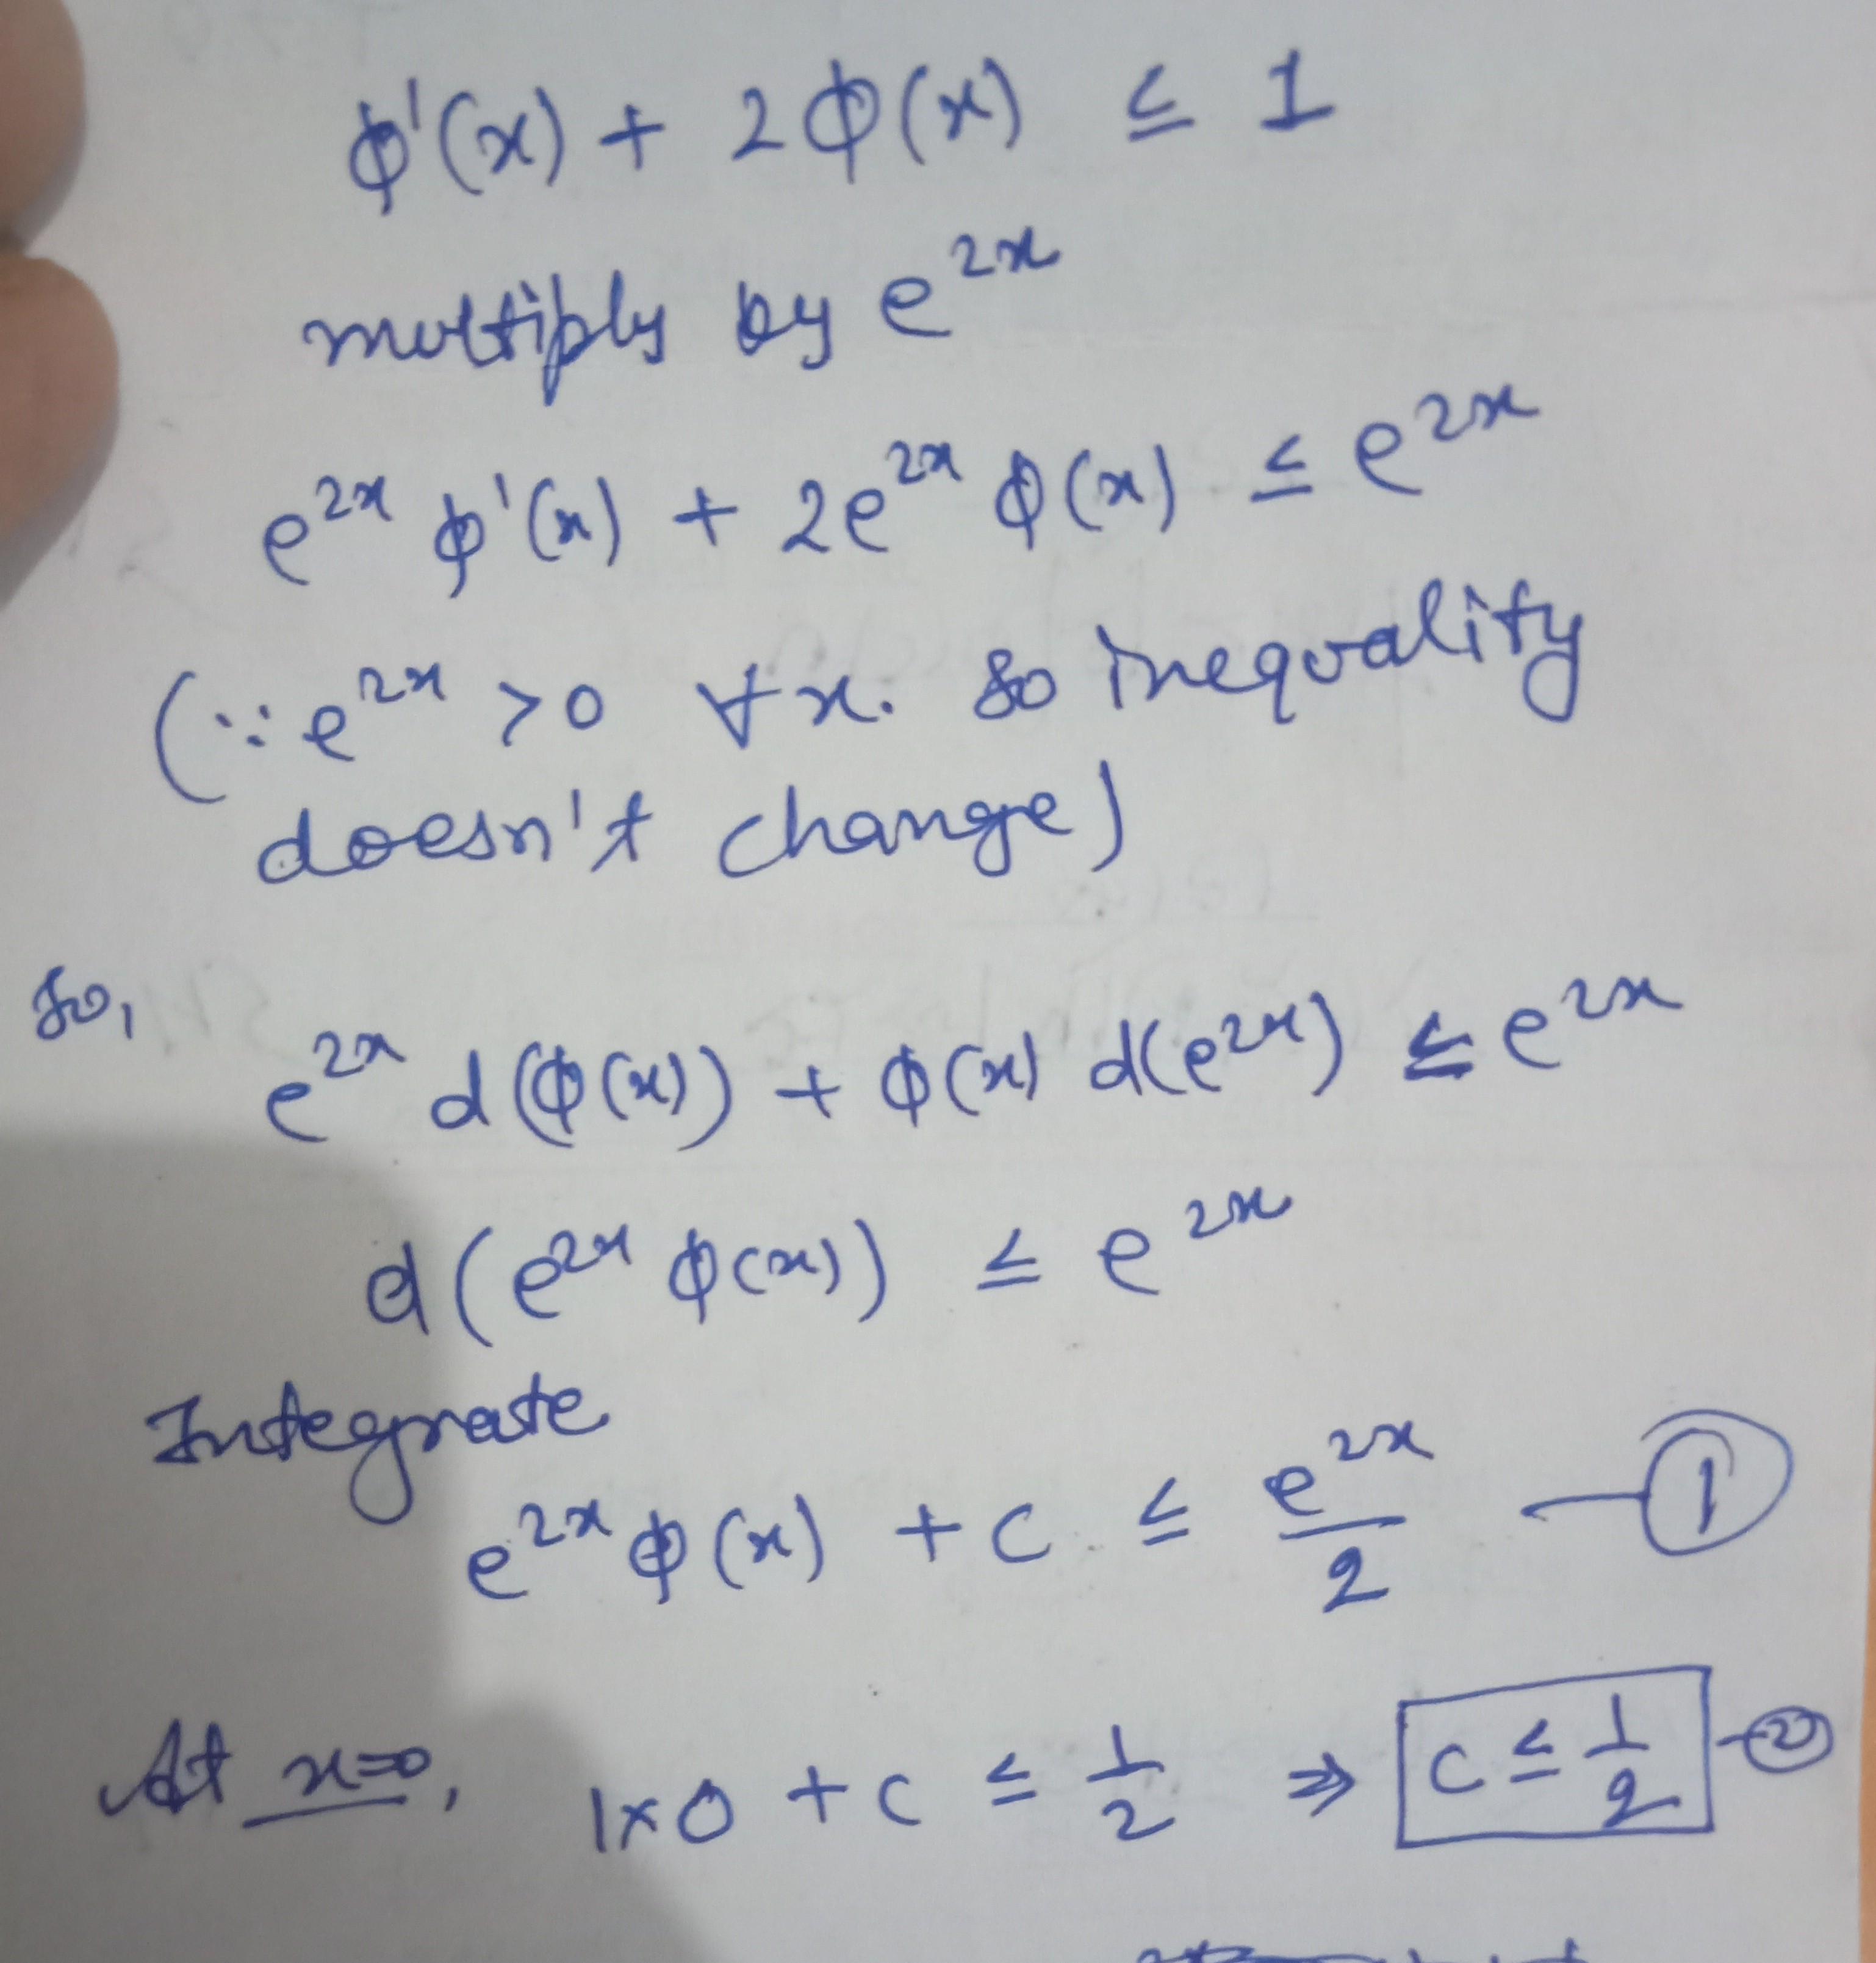 ϕ'(x) + 2ϕ(x) ≤ 1
multiply by e^{2x}
e^{2x} ϕ'(x) + 2e^{2x} ϕ(x) ≤ e^{2x}
(∵ e^{2x} > 0 ∀ x. So inequality
doesn't change)
So,
e^{2x} d(ϕ(x)) + ϕ(x) d(e^{2x}) ≤ e^{2x}
d(e^{2x} ϕ(x)) ≤ e^{2x}
Integrate
e^{2x} ϕ(x) + c ≤ e^{2x}/2 — ①
At x=0, 1×0 + c ≤ 1/2 ⇒ c ≤ 1/2 — ②